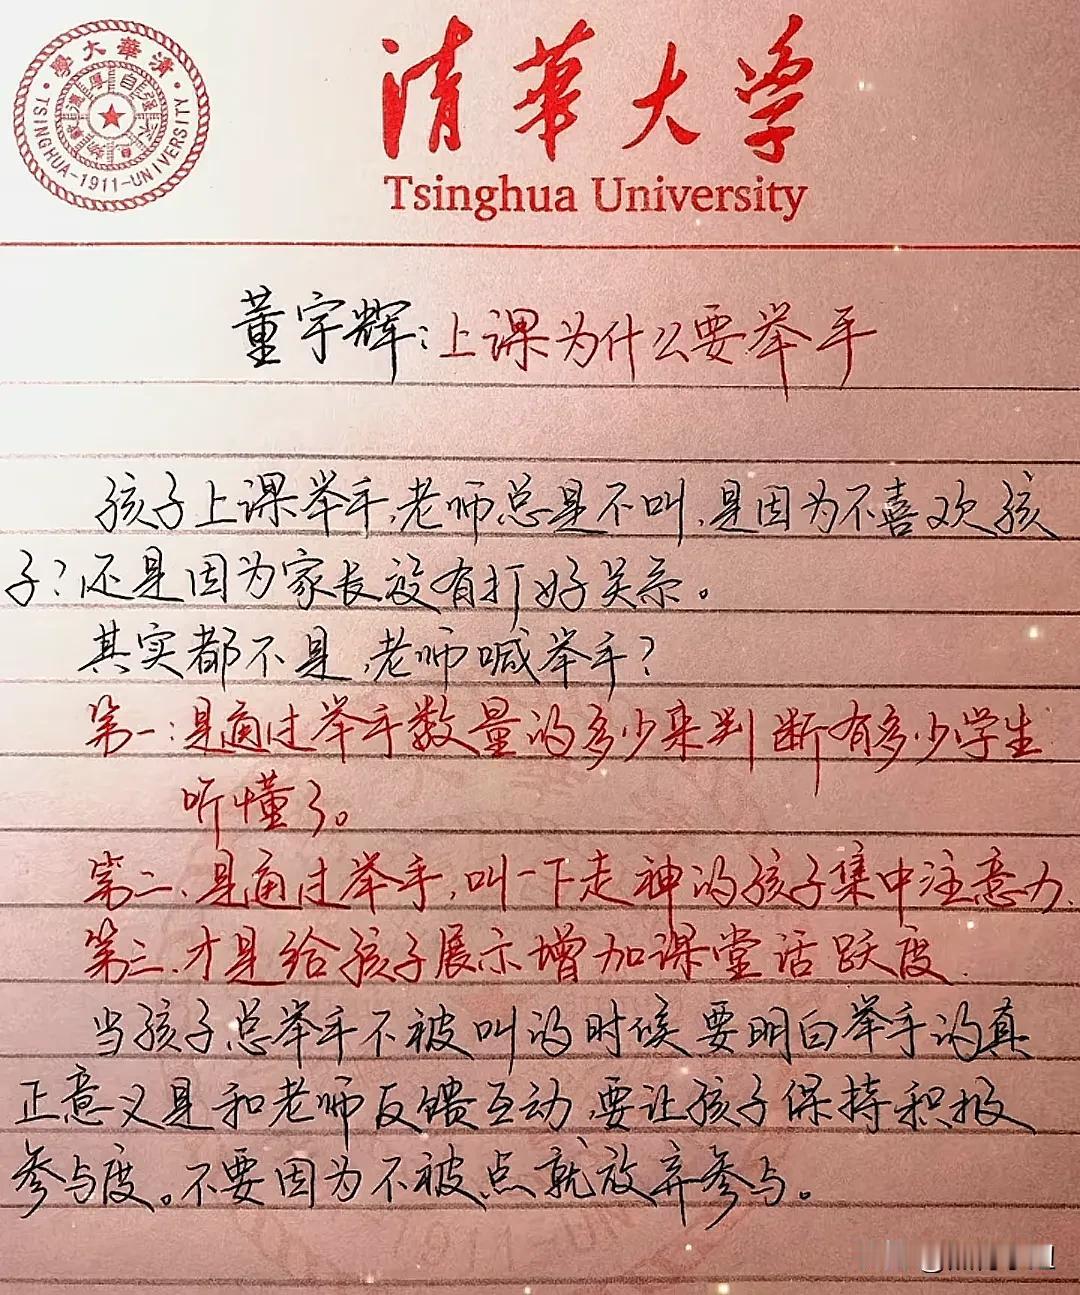 清華大学
Tsinghua University
清華大學
TSINGHUA-1911-UNIVERSITY
董宇辉:上课为什么要举手
孩子上课举手,老师总是不叫,是因为不喜欢孩
子?还是因为家长没有打好关系。
其实都不是,老师喊举手?
第一:是通过举手数量的多少来判断有多少学生
听懂了。
第二、是通过举手,叫一下走神的孩子集中注意力.
第三、才是给孩子展示增加课堂活跃度.
当孩子总举手不被叫的时候要明白举手的真
正意义是和老师反馈互动,要让孩子保持积极
参与度。不要因为不被点就放弃参与。